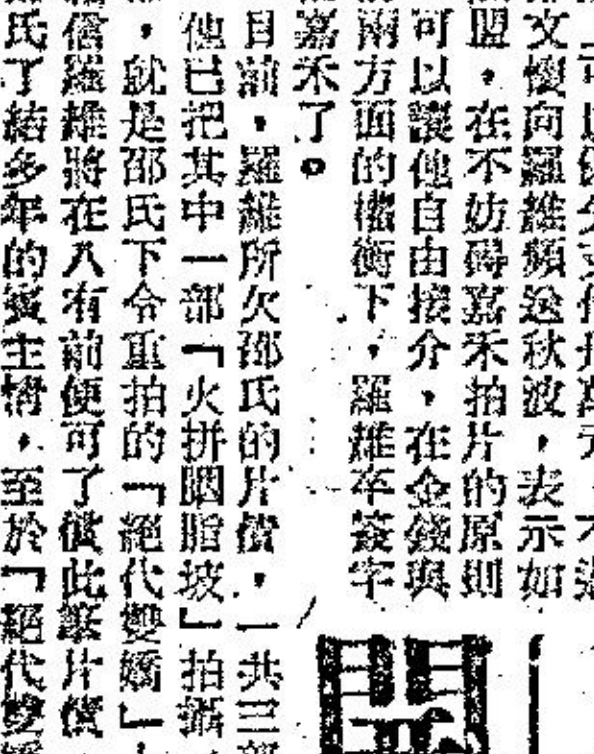 文懷向羅維頻送秋波，表示如
盟，在不妨碍嘉禾拍片的原則
可以讓他自由接介，在金錢與
兩方面的權衡下，羅維卒簽字
嘉禾了。
目前，羅維所欠邵氏的片債，一共三部
他已把其中一部「火拼胭脂坡」拍攝
，就是邵氏下令重拍的「絕代雙嬌」
信羅維將在八有前便可了償此筆片債，
氏了結多年的賓主情，至於「絕代雙